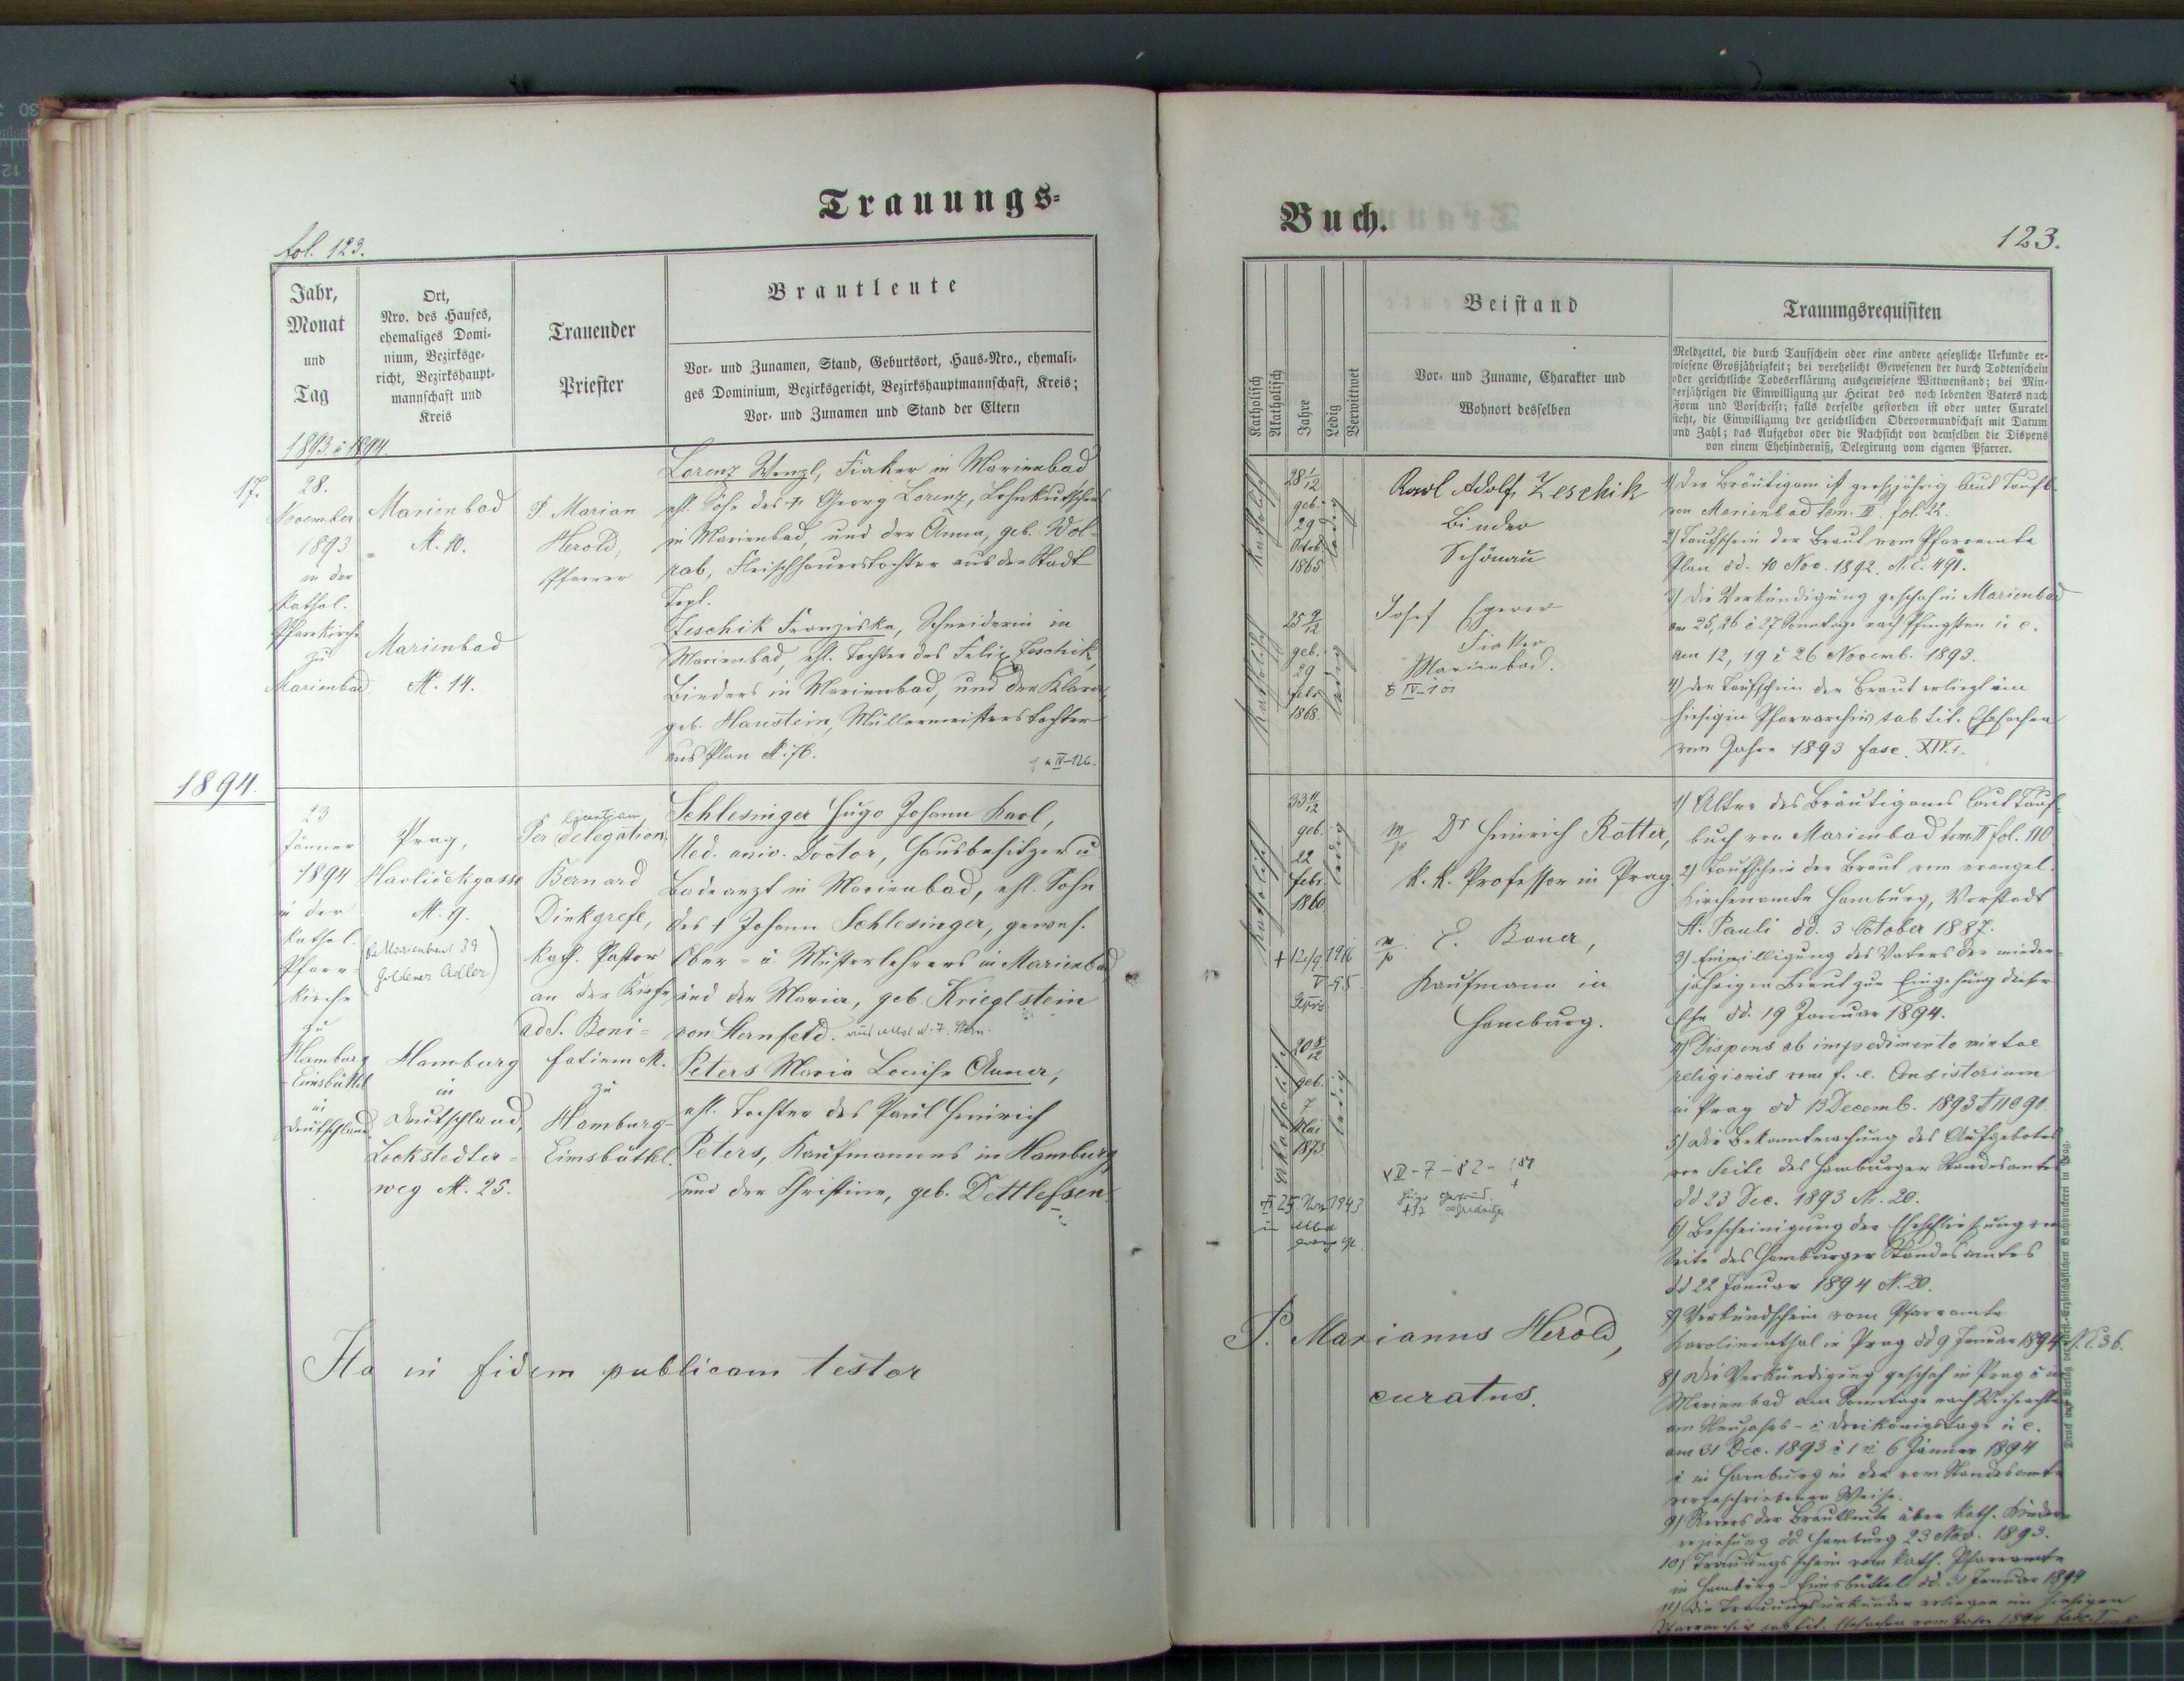 Trauungs-
fol. 123.
Jahr,
Monat
und
Tag
Ort,
Nro. des Hauses,
ehemaliges Domi-
nium, Bezirksge-
richt, Bezirkshaupt-
mannschaft und
Kreis
Trauender
Priester
Brautleute
Vor- und Zunamen, Stand, Geburtsort, Haus-Nro., ehemali-
ges Dominium, Bezirksgericht, Bezirkshauptmannschaft, Kreis;
Vor- und Zunamen und Stand der Eltern
1893 & 1894.
17.
28.
November
1893
in der
kathol.
Pfarrkirche
zu
Marienbad
Marienbad
N. 10.
Marienbad
N. 14.
P. Marian
Herold,
Pfarrer
Lorenz Wenzl, Fiaker in Marienbad
ehl. Sohn des † Georg Lorenz, Lohnkutschers
in Marienbad, und der Anna, geb. Wol-
rab, Fleischhauerstochter aus der Stadt
Tepl.
Zeschik Franziska, Schneiderin in
Marienbad, ehl. Tochter des Felix Zeschik,
Binders in Marienbad, und der Klara
geb. Haustein, Müllermeisterstochter
aus Plan N. 76.
1894.
23
Jänner
1894
in der
kathol.
Pfarr-
kirche
zu
Hamburg
-Eimsbüttel
in
Deutschland
Prag,
Havličekgasse
N. 9.
(in Marienbad 39
goldener Adler)
Hamburg
in
Deutschland,
Lockstedter-
weg N. 25.
Per delegation.
Bernard
Dinkgrefe,
kath. Pastor
an der Kirche
ad S. Boni-
fatium M.
zu
Hamburg-
Eimsbüttel.
Schlesinger Hugo Johann Karl,
Med. univ. Doctor, Hausbesitzer u.
Badearzt in Marienbad, ehl. Sohn
des † Johann Schlesinger, gewes.
Ober- u. Musterlehrers in Marienbad
und der Maria, geb. Krieglstein
von Sternfeld.
Peters Maria Louise Anna,
ehl. Tochter des Paul Heinrich
Peters, Kaufmannes in Hamburg
und der Christine, geb. Dettlefsen.
Ita in fidem publicam testor
Buch.
123.
Katholisch
Akatholisch
Jahre
Ledig
Verwittwet
Beistand
Vor- und Zuname, Charakter und
Wohnort desselben
Trauungsrequisiten
Meldzettel, die durch Taufschein oder eine andere gesetzliche Urkunde er-
wiesene Großjährigkeit; bei verehelicht Gewesenen der durch Todtenschein
oder gerichtliche Todeserklärung ausgewiesene Wittwenstand; bei Min-
derjährigen die Einwilligung zur Heirat des noch lebenden Vaters nach
Form und Vorschrift; falls derselbe gestorben ist oder unter Curatel
steht, die Einwilligung der gerichtlichen Obervormundschaft mit Datum
und Zahl; das Aufgebot oder die Nachsicht von demselben die Dispens
von einem Ehehinderniß, Delegirung vom eigenen Pfarrer.
katholisch
28 1/12
geb.
29
Octob.
1865
ledig
katholisch
25 9/12
geb.
29
Febr.
1868.
ledig
Karl Adolf Zeschik
Binder
Schönau
Josef Egerer
Fiaker
Marienbad.
1) Der Bräutigam ist großjährig laut Taufb.
von Marienbad tom. II. fol. 22.
2) Taufschein der Braut vom Pfarramte
Plan dd. 10 Nov. 1892. N. E. 491.
3) Die Verkündigung geschah in Marienbad
am 25, 26 & 27 Sonntage nach Pfingsten i. e.
am 12, 19 & 26 Novemb. 1893.
4) Der Taufschein der Braut erliegt im
hiesigen Pfarrarchiv sub tit. Ehesachen
vom Jahre 1893 fasc. XIV. 1.
katholisch
33 11/12
geb.
22
Febr.
1860
ledig
† 12/9 1916
akatholisch
20 8/12
geb.
7
Mai
1873
ledig
25 Nov 1943
m/p Dr Heinrich Rotter,
k. k. Professor in Prag.
m/p E. Bauer,
Kaufmann in
Hamburg.
1) Alter des Bräutigams laut Tauf-
buch von Marienbad tom. II fol. 110
2) Taufschein der Braut vom evangel.
Kirchenamte Hamburg, Vorstadt
St. Pauli dd. 3 October 1887.
3) Einwilligung des Vaters der minder-
jährigen Braut zur Eingehung dieser
Ehe dd. 19 Januar 1894.
4) Dispens ab impedimento mixtae
religionis vom f. e. Consistorium
in Prag dd 13 Decemb. 1893 N 11090.
5) Die Bekanntmachung des Aufgebotes
von Seite des Hamburger Standesamtes
dd 23 Dec. 1893 N. 20.
6) Bescheinigung der Eheschließung von
Seite des Hamburger Standesamtes
dd 22 Januar 1894 N. 20.
7) Verkündschein vom Pfarramte
Karolinenthal in Prag dd 9 Januar 1894 N. E. 36.
8) Die Verkündigung geschah in Prag & in
Marienbad am Sonntage nach Weihnachten
am Neujahrs- & Dreikönigstage i. e.
am 31 Dec. 1893 & 1 & 6 Jänner 1894
& in Hamburg in der vom Standesamte
vorgeschriebenen Weise.
9) Revers der Brautleute über kath. Kinder-
erziehung dd. Hamburg 23 Nov. 1893.
10) Trauungsschein vom kath. Pfarramte
in Hamburg-Eimsbüttel dd. Januar 1894
11) Die Trauungsurkunden erliegen im hiesigen
Pfarrarchiv sub tit. Ehesachen vom Jahre 1894
P. Marianus Herold,
curatus.